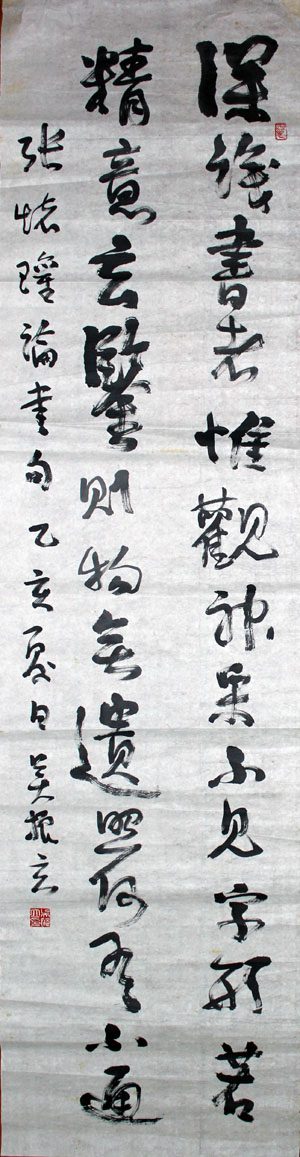 深識書者惟觀神采不見字形若
精意玄鑒則物無遺照何有不通
張懷瓘論書句乙亥夏日吴振立